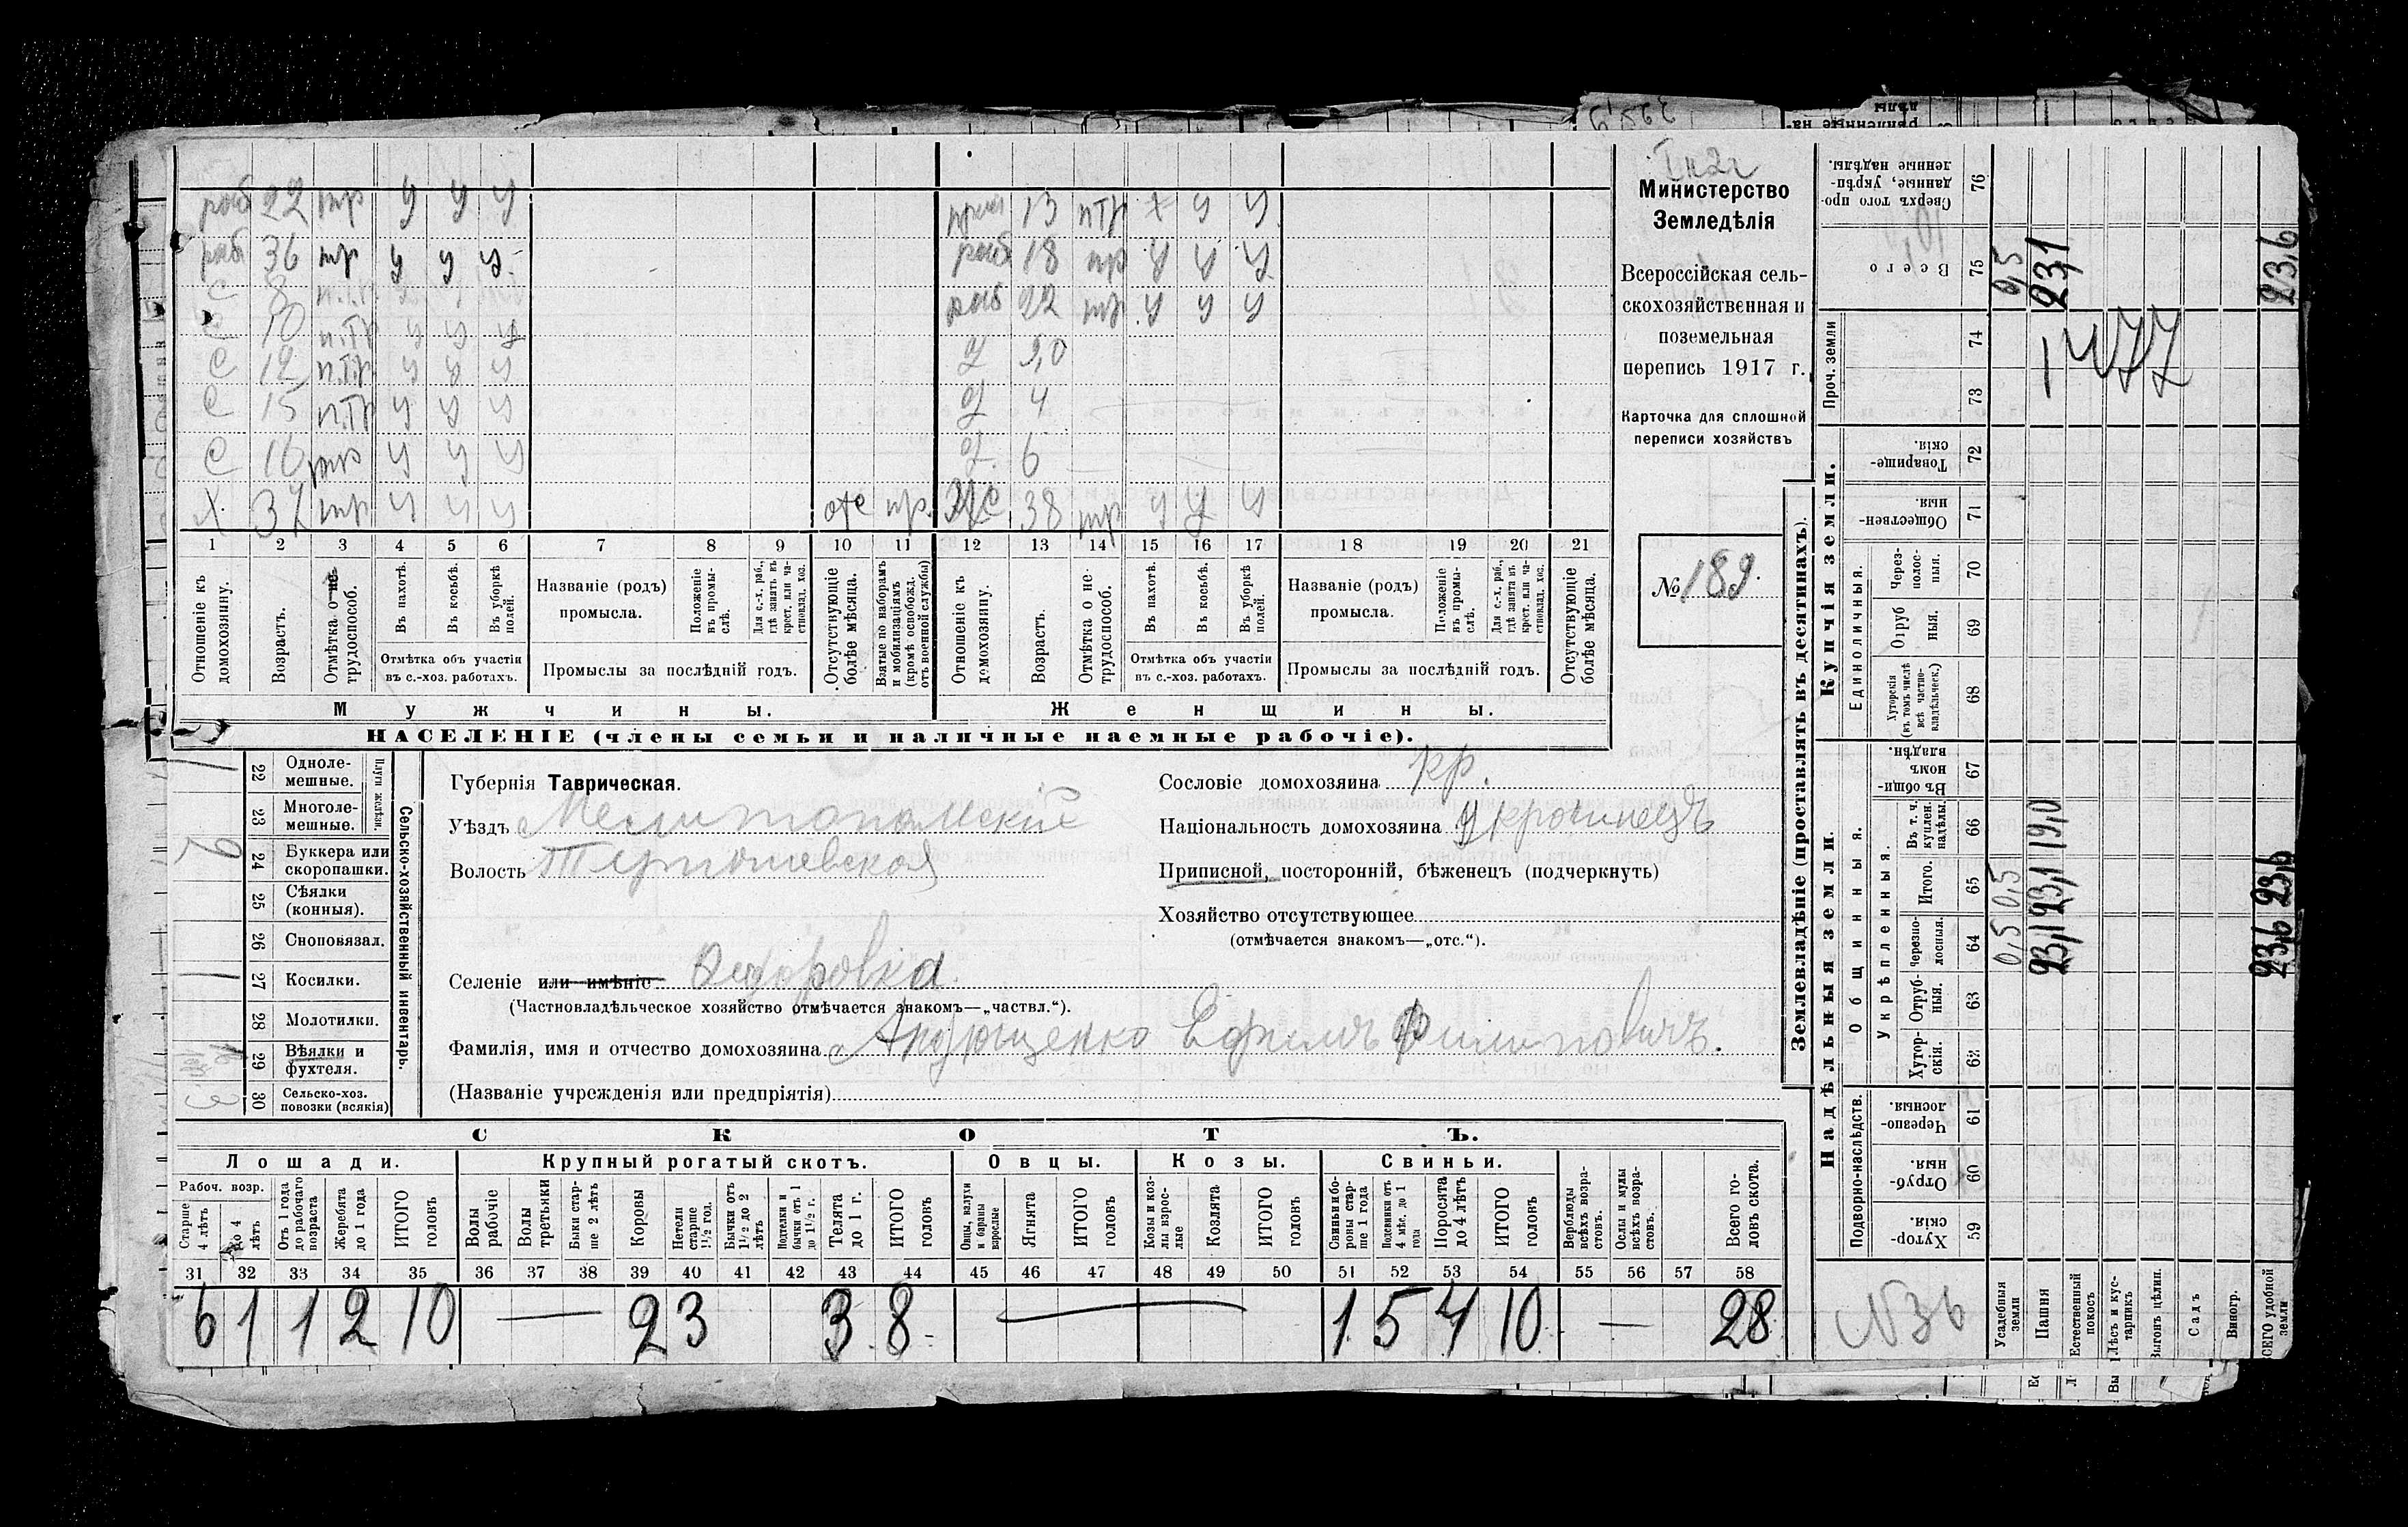 раб 22 тр у у у 13 птр х у у
раб 36 тр у у у раб 18 тр у у у
с 8 п.т.р. раб 22 тр у у у
с 10 п.тр у у у
с 12 п.тр у у у д 4
с 15 п.тр у у у д 6
с 16 тр у у у
х 37 тр у у у отс пр. 38 тр у у у
1 2 3 4 5 6 7 8 9 10 11 12 13 14 15 16 17 18 19 20 21
Отношеніе къ домохозяину.
Возрастъ.
Отмѣтка о не-трудоспособ.
Въ пахотѣ.
Въ косьбѣ.
Въ уборкѣ полей.
Отмѣтка объ участіи въ с.-хоз. работахъ.
Названіе (родъ) промысла.
Положеніе въ промы-слѣ.
Для с.-х. раб., гдѣ занятъ въ крест. или ча-стновлад. хоз.
Промыслы за послѣдній годъ.
Отсутствующіе болѣе мѣсяца.
Взятые по наборамъ и мобилизаціямъ (кромѣ освобожд. отъ военной службы)
Отношеніе къ домохозяину.
Возрастъ.
Отмѣтка о не-трудоспособ.
Въ пахотѣ.
Въ косьбѣ.
Въ уборкѣ полей.
Отмѣтка объ участіи въ с.-хоз. работахъ.
Названіе (родъ) промысла.
Положеніе въ промы-слѣ.
Для с.-х. раб., гдѣ занятъ въ крест. или ча-стновлад. хоз.
Промыслы за послѣдній годъ.
Отсутствующіе болѣе мѣсяца.
Мужчины. Женщины.
НАСЕЛЕНІЕ (члены семьи и наличные наемные рабочіе).
Министерство
Земледѣлія
Всероссійская сель-
скохозяйственная и
поземельная
перепись 1917 г.
Карточка для сплошной
переписи хозяйствъ
№ 189.
22 Одноле-мешные.
23 Многоле-мешные.
Плуги желѣзн.
24 Буккера или скоропашки.
25 Сѣялки (конныя).
26 Сноповязал.
27 Косилки.
28 Молотилки.
29 Вѣялки и фухтеля.
30 Сельско-хоз. повозки (всякія)
Сельско-хозяйственный инвентарь.
1
2
1
3
Губернія Таврическая.
Уѣздъ Мелитопольскій
Волость
Селеніе или имѣніе
(Частновладѣльческое хозяйство отмѣчается знакомъ—„частвл.“).
Фамилія, имя и отчество домохозяина Андрющенко Ефимъ Филиповичъ.
(Названіе учрежденія или предпріятія)
Сословіе домохозяина кр.
Національность домохозяина Украинецъ
Приписной, посторонній, бѣженецъ (подчеркнуть)
Хозяйство отсутствующее
(отмѣчается знакомъ—„отс.“).
СКОТЪ.
Лошади. Крупный рогатый скотъ. Овцы. Козы. Свиньи.
Рабоч. возр.
Старше 4 лѣтъ
до 4 лѣтъ
Отъ 1 года до рабочаго возраста
Жеребята до 1 года
ИТОГО головъ
Волы рабочіе
Волы третьяки
Быки стар-ше 2 лѣтъ
Коровы
Нетели старше 1½ год.
Бычки отъ 1½ до 2 лѣтъ
Подтелки и бычки отъ 1 до 1½ г.
Телята до 1 г.
ИТОГО головъ
Овцы, валухи и бараны взрослые
Ягнята
ИТОГО головъ
Козы и коз-лы взрос-лые
Козлята
ИТОГО головъ
Свиньи и бо-ровы стар-ше 1 года
Подсвинки отъ 4 мѣс. до 1 года
Поросята до 4 лѣтъ
ИТОГО головъ
Верблюды всѣхъ возра-стовъ.
Ослы и мулы всѣхъ возра-стовъ.
Всего го-ловъ скота.
31 32 33 34 35 36 37 38 39 40 41 42 43 44 45 46 47 48 49 50 51 52 53 54 55 56 57 58
6 1 1 2 10 — 2 3 3 8 — 1 5 4 10 — 28
Землевладѣніе (проставлять въ десятинахъ).
Надѣльныя земли. Купчія земли. Проч. земли
Подворно-наслѣдств. Общинныя. Укрѣпленныя. Единоличныя.
Хутор-скія. 59
Отруб-ныя. 60
Черезпо-лосныя. 61
Хутор-скія. 62
Отруб-ныя. 63
Черезпо-лосныя. 64
Итого. 65
Въ т. ч. куплен. надѣлы. 66
Въ общи-номъ владѣн. 67
Хуторскія (въ томъ числѣ всѣ частно-владѣльческ.) 68
Отруб ныя. 69
Через-полос-ныя. 70
Обществен-ныя 71
Товарище-скія. 72
73 74
Всего 75
Сверхъ того про-данные, укрѣп-ленные надѣлы. 76
Усадебныя земли 0,5 0,5 0,5
Пашня 23,1 23,1 19,0 23,1
Естественный покосъ
Лѣсъ и кус-тарникъ
Выгонъ цѣлин.
Садъ
Виногр.
ВСЕГО удобной земли 23,6 23,6 23,6
1477